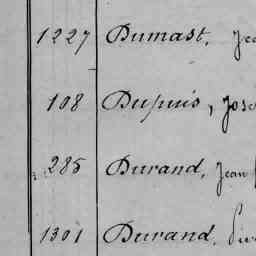 1227 Dumast, Jea
108 Dupuis, Jose
285 Durand, Jean
1301 Durand, Pie